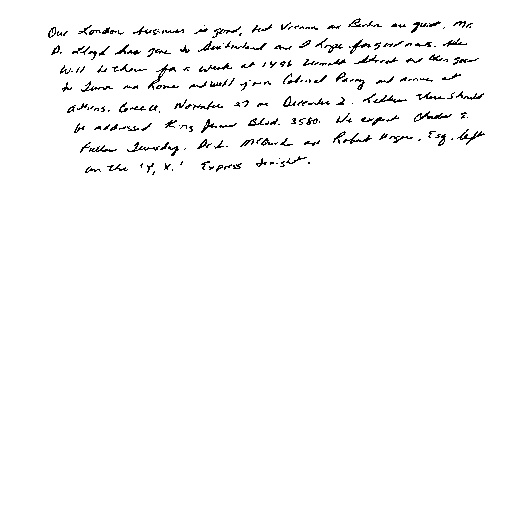 Our London business is good, but Vienna and Berlin are quiet. Mr.
D. Lloyd has gone to Switzerland and I hope for good news. He
will be there for a week at 1496 Zermatt Street and then goes
to Turin and Rome and will join Colonel Parry and arrive at
Athens, Greece, November 27 or December 2. Letters there should
be addressed King James Blvd. 3580. We expect Charles E.
Fuller Tuesday. Dr. L. McQuaid and Robert Unger, Esq. left
on the 'Y, X.' Express tonight.